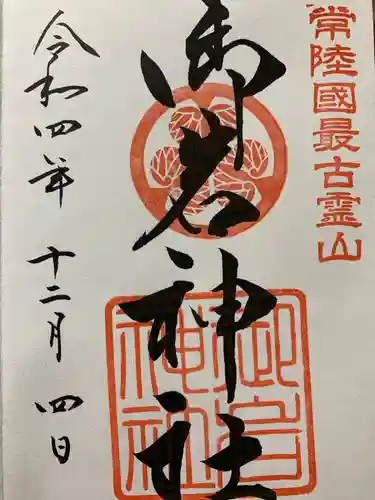 常陸國最古霊山
御岩神社
御岩神社
令和四年 十二月 四日